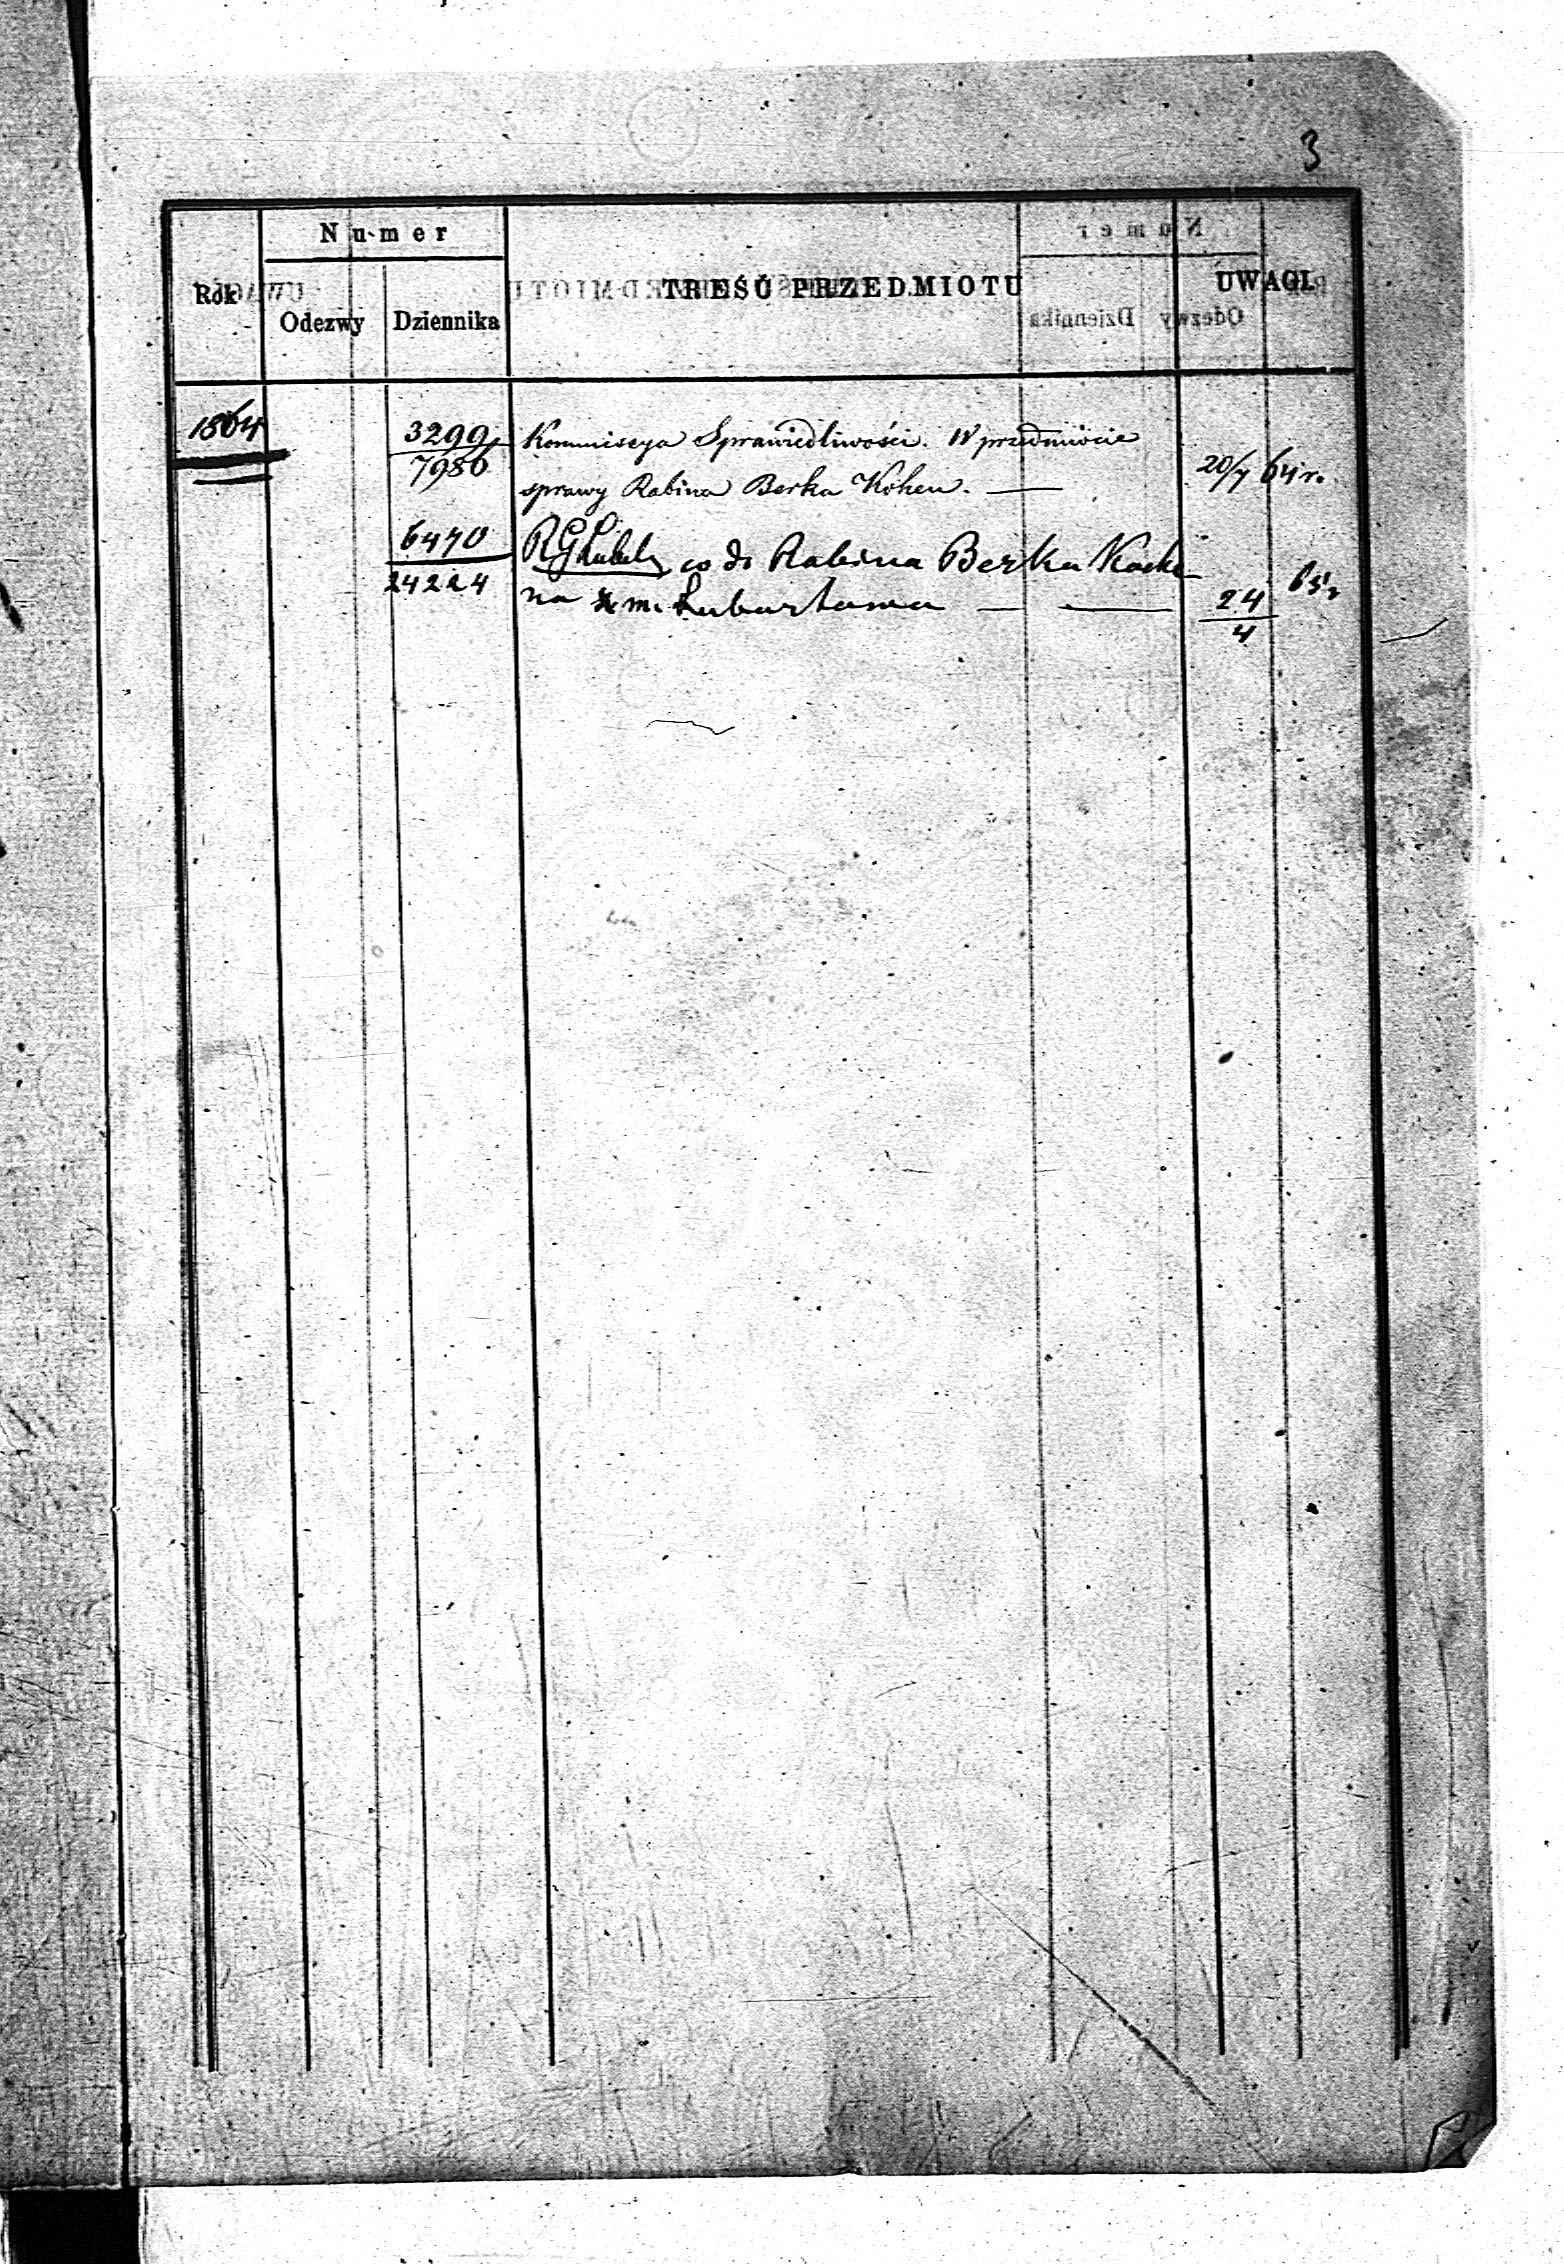 3
Numer
Rok
Odezwy
Dziennika
TREŚĆ PRZEDMIOTU
UWAGI.
1864
3299
7986
Kommissya Sprawiedliwości. W przedmiocie
sprawy Rabina Berka Kohen. —
20/4 64 r.
6470
24224
RGLubel co do Rabina Berka
na m. Lubartowa — —
24
4
65 r